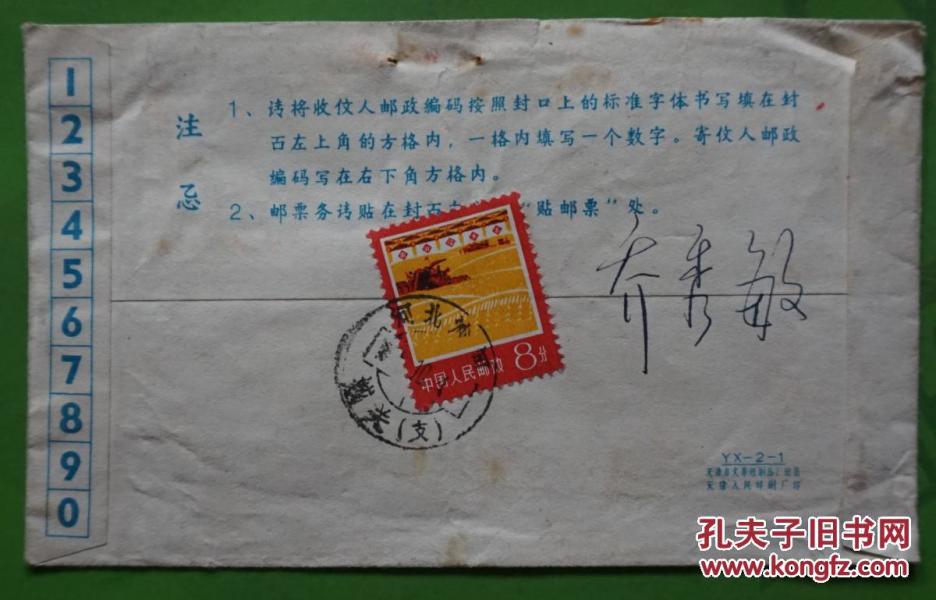 1
2
3
4
5
6
7
8
9
0
注
忌
1、诗将收仗人邮政编码按照封口上的标准字体书写填在封
百左上角的方格内，一格内填写一个数字。寄仗人邮政
编码写在右下角方格内。
2、邮票务诗贴在封百右 “贴邮票”处。
乔秀敏
中国人民邮政 8分
河北
(支)
YX-2-1
天津人民印刷厂印
孔夫子旧书网
www.kongfz.com